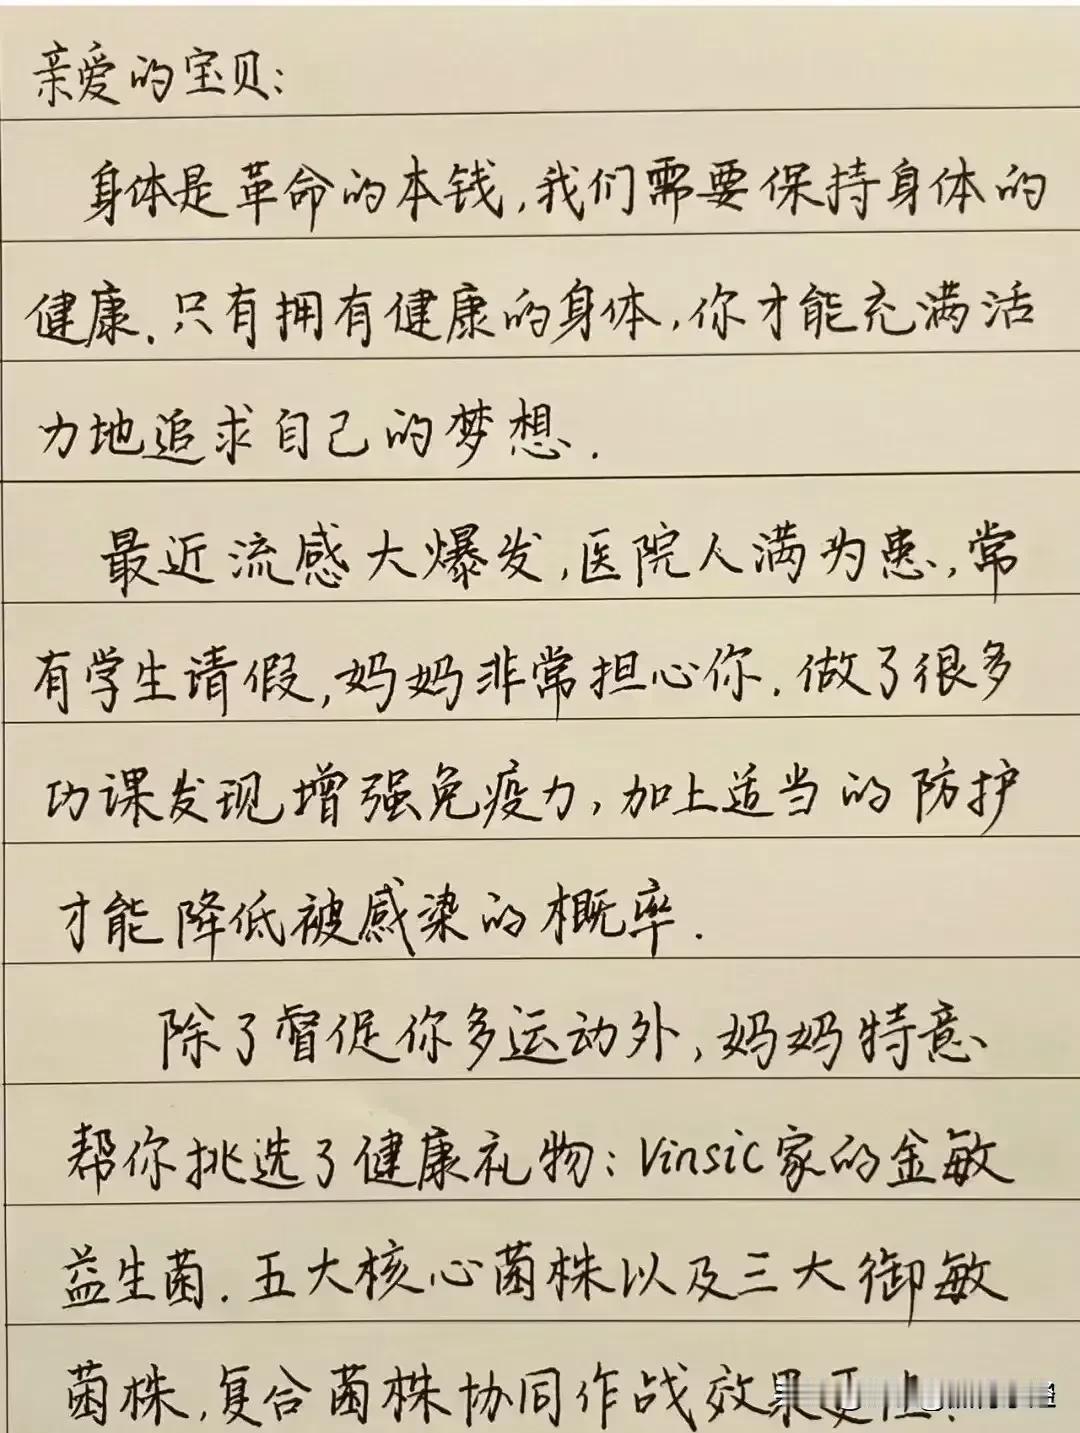 亲爱的宝贝：
身体是革命的本钱,我们需要保持身体的
健康.只有拥有健康的身体,你才能充满活
力地追求自己的梦想.
最近流感大爆发,医院人满为患,常
有学生请假,妈妈非常担心你.做了很多
功课发现增强免疫力,加上适当的防护
才能降低被感染的概率.
除了督促你多运动外,妈妈特意
帮你挑选了健康礼物：Vinsic家的金敏
益生菌.五大核心菌株以及三大御敏
菌株,复合菌株协同作战效果更